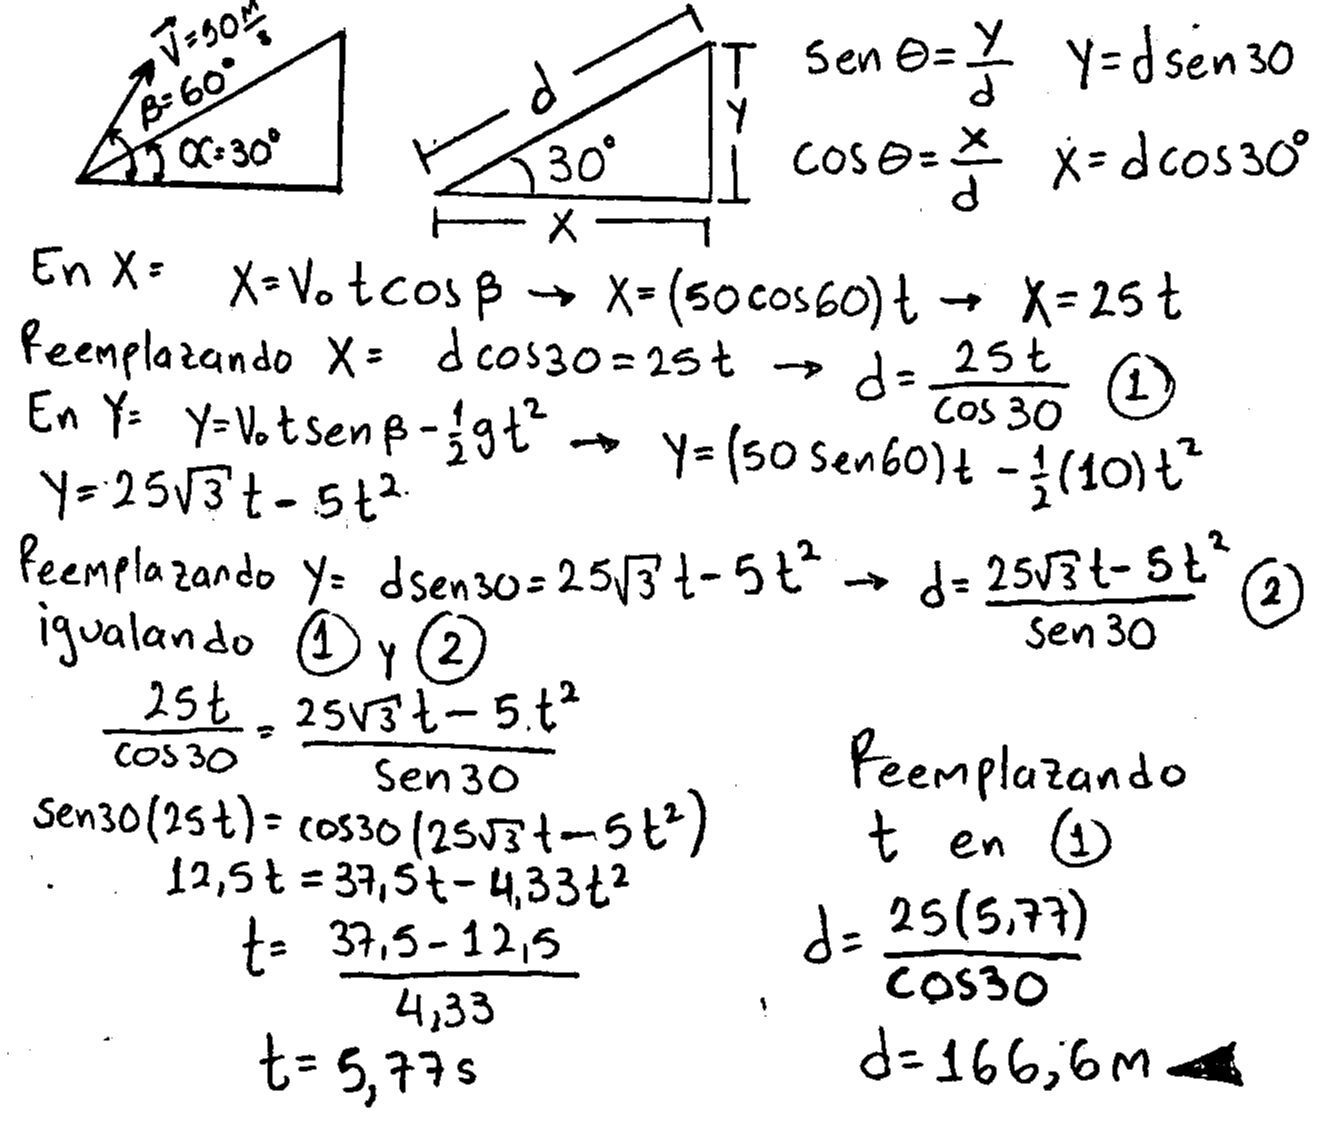 V⃗=50 m/s
β=60°
α=30°
d
30°
Y
X
Sen θ = Y/d   Y=d sen 30
cos θ = x/d   X=d cos 30°
En X=   X=V₀ t cos β → X=(50 cos 60)t → X=25t
Reemplazando X= d cos 30=25t → d= 25t/cos 30 ①
En Y= Y=V₀ t sen β - 1/2 g t² → Y=(50 sen 60)t - 1/2 (10)t²
Y=25√3 t - 5t²
Reemplazando Y= d sen 30=25√3 t - 5t² → d= 25√3 t - 5t²/sen 30 ②
igualando ① y ②
25t/cos 30 = 25√3 t - 5.t²/Sen 30
Sen 30(25t)= cos 30 (25√3 t - 5t²)
12,5t = 37,5t - 4,33t²
t= 37,5 - 12,5/4,33
t= 5,77s
Reemplazando
t en ①
d= 25(5,77)/cos 30
d=166,6m